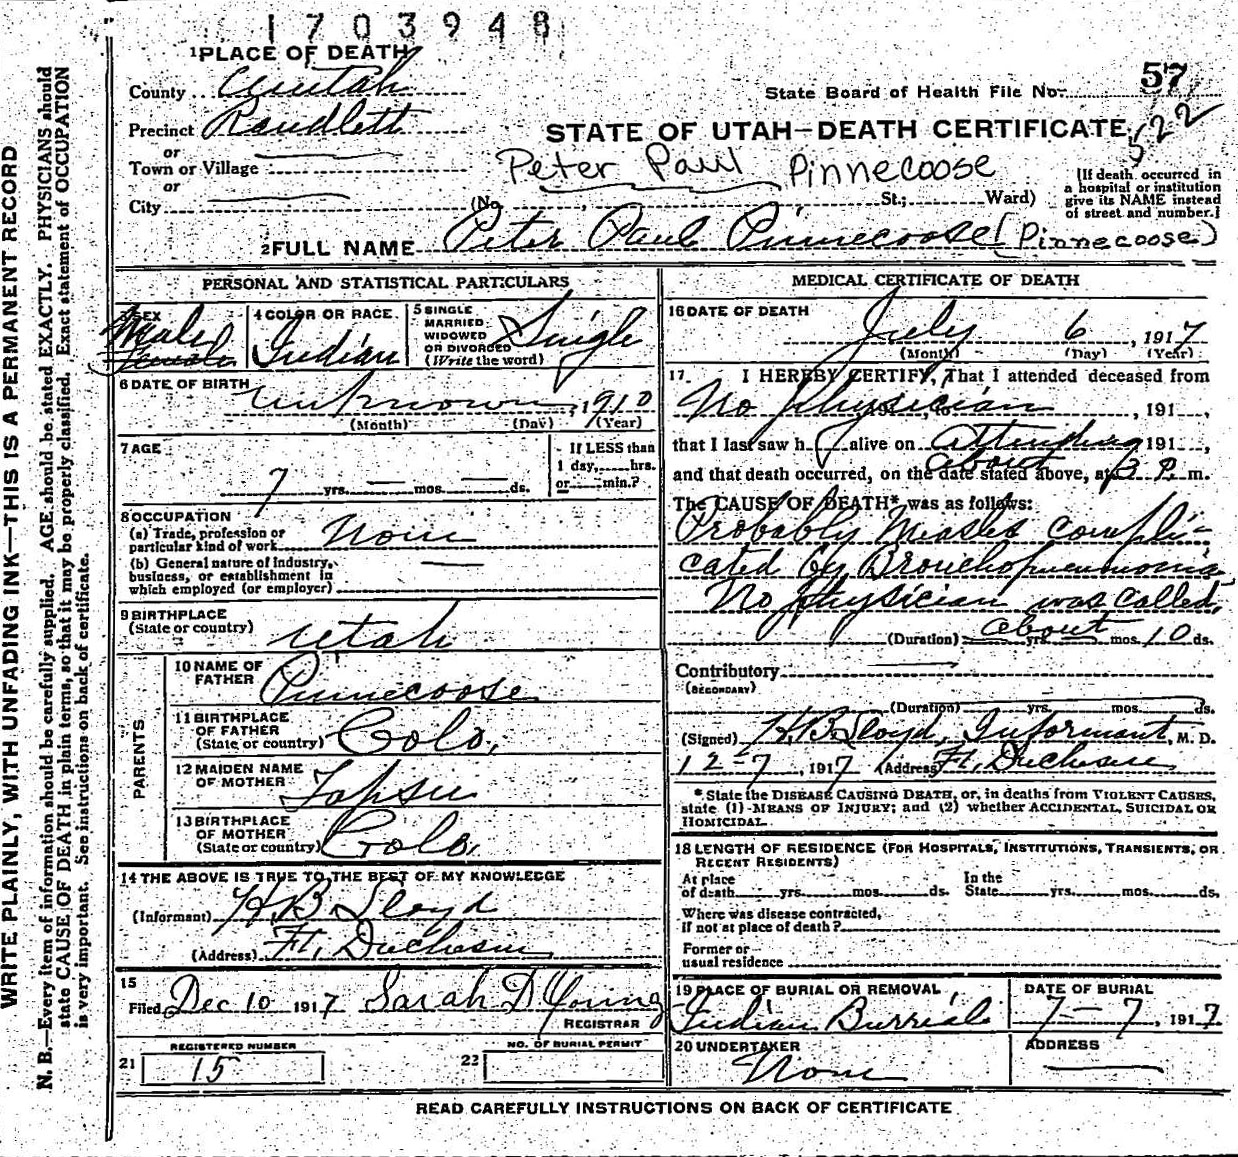 1703948
1 PLACE OF DEATH
County Uintah
State Board of Health File No. 57
522
Precinct Randlett
STATE OF UTAH—DEATH CERTIFICATE
or
Town or Village
Peter Paul Pinnecoose
or
City
(No. St.; Ward)
[If death occurred in
a hospital or institution
give its NAME instead
of street and number.]
2 FULL NAME Peter Paul Pinnecoose (Pinnecoose)
PERSONAL AND STATISTICAL PARTICULARS
3 SEX
Male
Female
4 COLOR OR RACE
Indian
5 SINGLE
MARRIED
WIDOWED
OR DIVORCED
(Write the word)
Single
6 DATE OF BIRTH
unknown, 1910
(Month) (Day) (Year)
7 AGE
7 yrs. — mos. — ds.
If LESS than
1 day, hrs.
or min.?
8 OCCUPATION
(a) Trade, profession or
particular kind of work None
(b) General nature of industry,
business, or establishment in
which employed (or employer) —
9 BIRTHPLACE
(State or country) Utah
PARENTS
10 NAME OF
FATHER Pinnecoose
11 BIRTHPLACE
OF FATHER
(State or country) Colo.
12 MAIDEN NAME
OF MOTHER
13 BIRTHPLACE
OF MOTHER
(State or country) Colo.
14 THE ABOVE IS TRUE TO THE BEST OF MY KNOWLEDGE
(Informant) H. B. Lloyd
(Address) Ft. Duchesne
15
Filed Dec 10 1917 Sarah D Young
REGISTRAR
REGISTERED NUMBER
21 15
NO. OF BURIAL PERMIT
22
MEDICAL CERTIFICATE OF DEATH
16 DATE OF DEATH
July 6, 1917
(Month) (Day) (Year)
17 I HEREBY CERTIFY, That I attended deceased from
No physician, 191 ,
that I last saw h alive on attending 191 ,
and that death occurred, on the date stated above, at about 3 P. m.
The CAUSE OF DEATH* was as follows:
Probably Measles compli-
cated by Bronchopneumonia
No physician was called,
(Duration) about yrs. mos. 10 ds.
Contributory —
(SECONDARY)
(Duration) yrs. mos. ds.
(Signed) H. B. Lloyd, Informant, M. D.
12-7, 1917 (Address) Ft. Duchesne
* State the DISEASE CAUSING DEATH, or, in deaths from VIOLENT CAUSES,
state (1) MEANS OF INJURY; and (2) whether ACCIDENTAL, SUICIDAL OR
HOMICIDAL.
18 LENGTH OF RESIDENCE (FOR HOSPITALS, INSTITUTIONS, TRANSIENTS, OR
RECENT RESIDENTS)
At place
of death yrs. mos. ds.
In the
State yrs. mos. ds.
Where was disease contracted,
if not at place of death?
Former or
usual residence
19 PLACE OF BURIAL OR REMOVAL
Indian Burrial
DATE OF BURIAL
7-7, 1917
20 UNDERTAKER
None
ADDRESS
—
READ CAREFULLY INSTRUCTIONS ON BACK OF CERTIFICATE
WRITE PLAINLY, WITH UNFADING INK—THIS IS A PERMANENT RECORD
N. B.—Every item of information should be carefully supplied. AGE should be stated EXACTLY. PHYSICIANS should
state CAUSE OF DEATH in plain terms, so that it may be properly classified. Exact statement of OCCUPATION
is very important. See instructions on back of certificate.